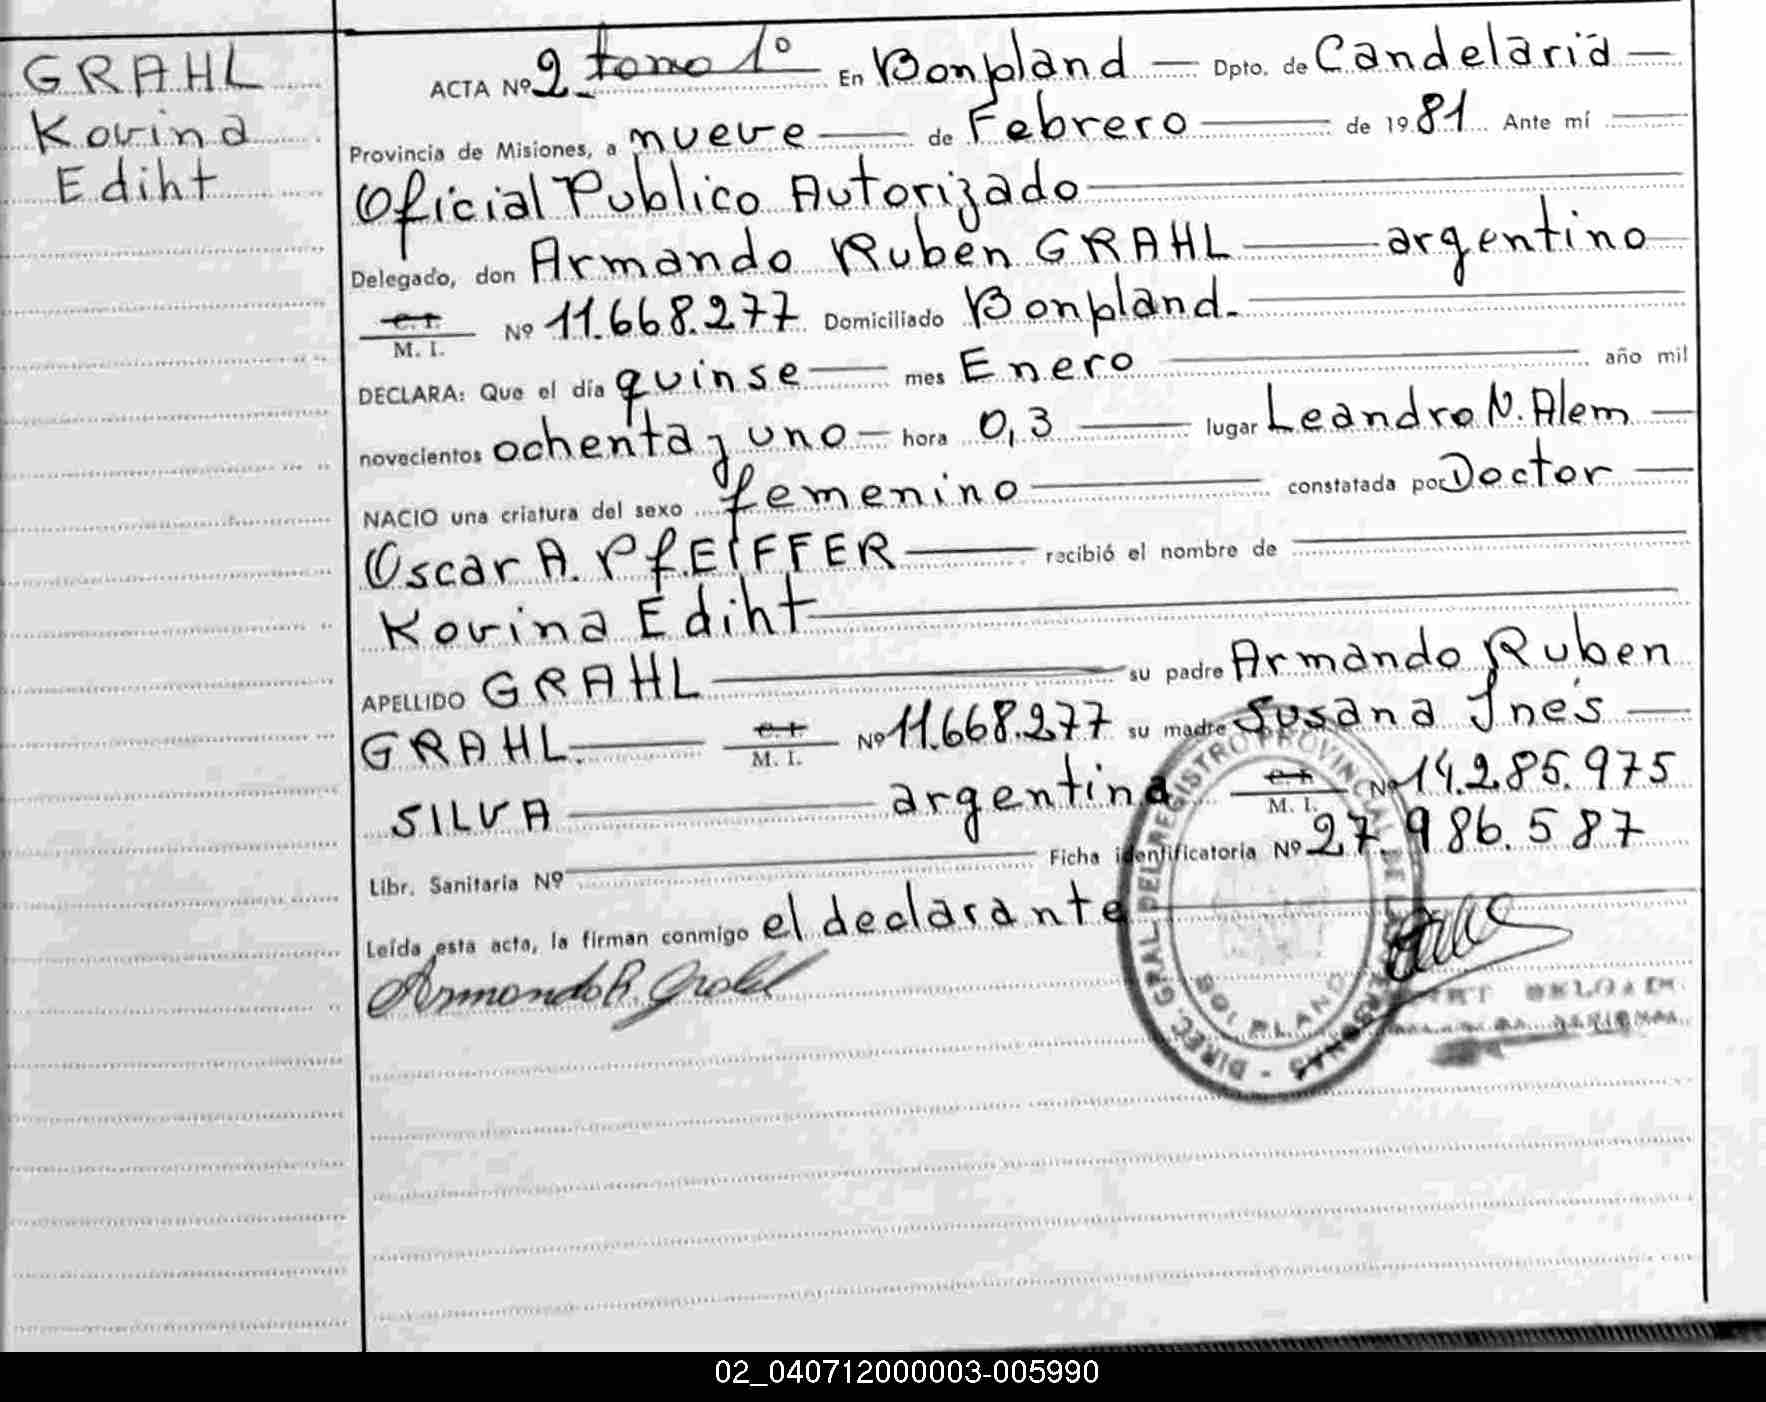 GRAHL
Kovina
Ediht
ACTA Nº 2 tomo 1º En Bonpland — Dpto. de Candelaria —
Provincia de Misiones, a nueve — de Febrero — de 1981 Ante mí —
Oficial Publico Autorizado —
Delegado, don Armando Ruben GRAHL — argentino
C. I. M. I. Nº 11.668.277 Domiciliado Bonpland. —
DECLARA: Que el día quinse — mes Enero — año mil
novecientos ochenta y uno — hora 0,3 — lugar Leandro N. Alem —
NACIO una criatura del sexo femenino — constatada por Doctor —
Oscar A. PfEIFFER — recibió el nombre de —
Kovina Ediht —
APELLIDO GRAHL — su padre Armando Ruben
GRAHL. — C. I. M. I. Nº 11.668.277 su madre Susana Inés —
SILVA — argentina C. I. M. I. Nº 14.285.975
Libr. Sanitaria Nº — Ficha identificatoria Nº 27.986.587
Leída esta acta, la firman conmigo el declarante —
Armando R. Grahl
DIREC. GRAL. DEL REGISTRO PROVINCIAL DE LAS PERSONAS -
BONPLAND
02_040712000003-005990